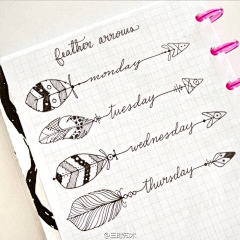 feather arrows
monday
tuesday
wednesday
thursday